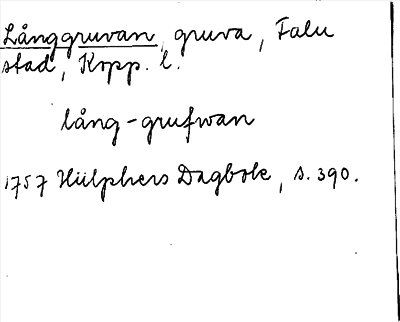 Långgruvan, gruva, Falu
stad, Kopp. l.
lång-grufwan
1757 Hülphers Dagbok, s. 390.